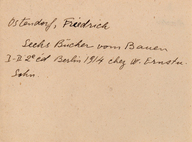 Ostendorf, Friedrich
Sechs Bücher vom Bauen
I-II 2e éd Berlin 1914 chez W. Ernst u.
Sohn.